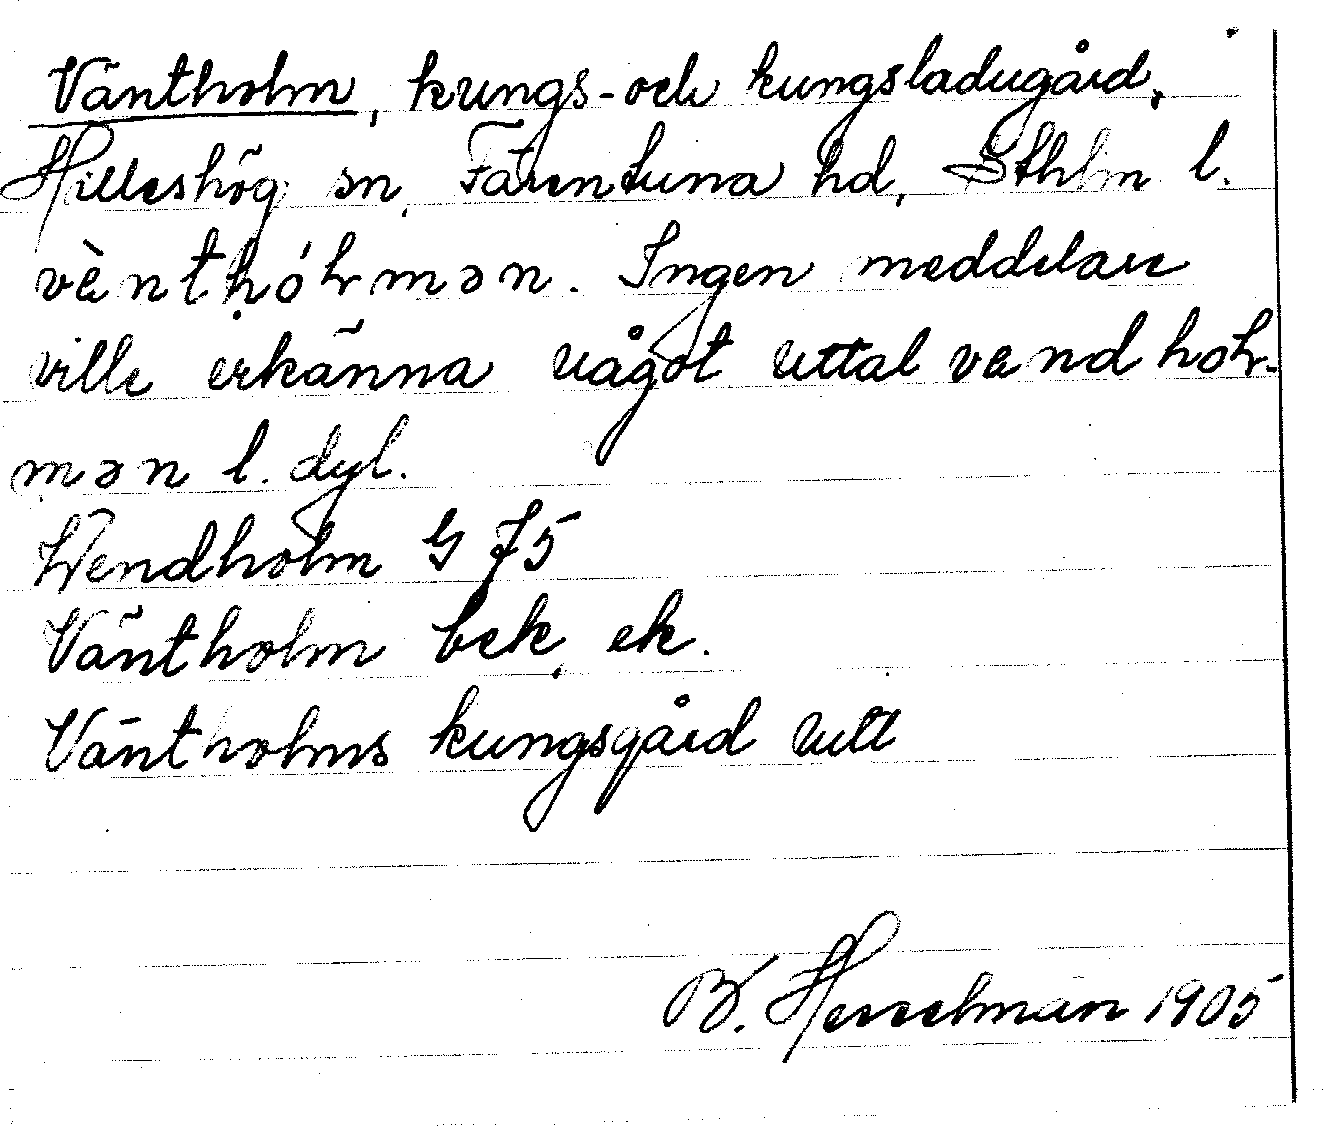 Väntholm, kungs- och kungsladugård,
Hilleshög sn, Färentuna hd, Sthlm l.
vènthól̥mən. Ingen meddelare
ville erkänna något uttal vendhoł-
mən l. dyl.
Wendholm G 75
Väntholm bek, ek.
Väntholms kungsgård utt
B. Hesselman 1905